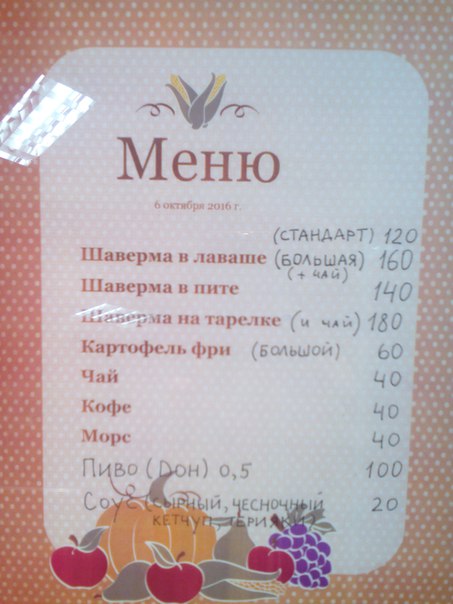 Меню
6 октября 2016 г.
(СТАНДАРТ) 120
Шаверма в лаваше (БОЛЬШАЯ) 160
(+ ЧАЙ)
Шаверма в пите 140
Шаверма на тарелке (и ЧАЙ) 180
Картофель фри (БОЛЬШОЙ) 60
Чай 40
Кофе 40
Морс 40
Пиво (Дон) 0,5 100
Соус (сырный, чесночный 20
кетчуп, терияки)